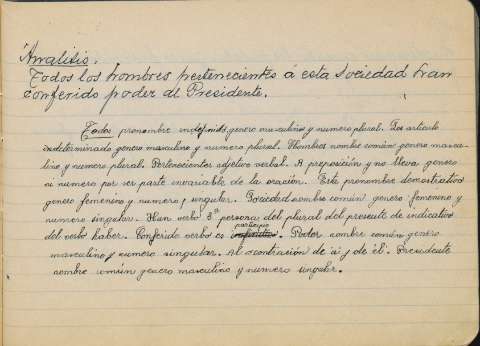 Analisis.
Todos los hombres pertenecientes á esta Sociedad han
conferido poder al Presidente.
Todos pronombre indefinido, genero masculino y numero plural. Los articulo
indeterminado genero masculino y numero plural. Hombres nombre común genero mascu-
lino y numero plural. Pertenecientes adjetivo verbal. A preposición y no lleva genero
ni numero por ser parte invariable de la oración. Esta pronombre demostrativo
genero femenino y numero singular. Sociedad nombre común genero femenino y
numero singular. Han verbo 3ª persona del plural del presente de indicativo
del verbo haber. Conferido verbo es participio. Poder nombre común genero
masculino y numero singular. Al contracción de "á" y de "él". Presidente
nombre común genero masculino y numero singular.